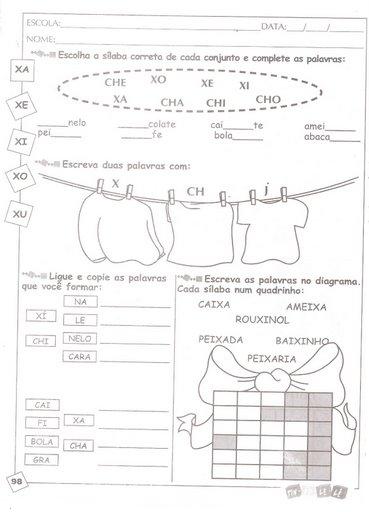 ESCOLA: DATA: / /
NOME:
Escolha a sílaba correta de cada conjunto e complete as palavras:
XA
XE
XI
XO
XU
CHE XO XE XI
XA CHA CHI CHO
____nelo ____colate cai____te amei____
pei____ ____fe bola____ abaca____
Escreva duas palavras com:
X CH j
Ligue e copie as palavras
que você formar:
NA
XÍ LE
CHI NELO
CARA
CAI
FI XA
BOLA CHA
GRA
Escreva as palavras no diagrama.
Cada sílaba num quadrinho:
CAIXA AMEIXA
ROUXINOL
PEIXADA BAIXINHO
PEIXARIA
98